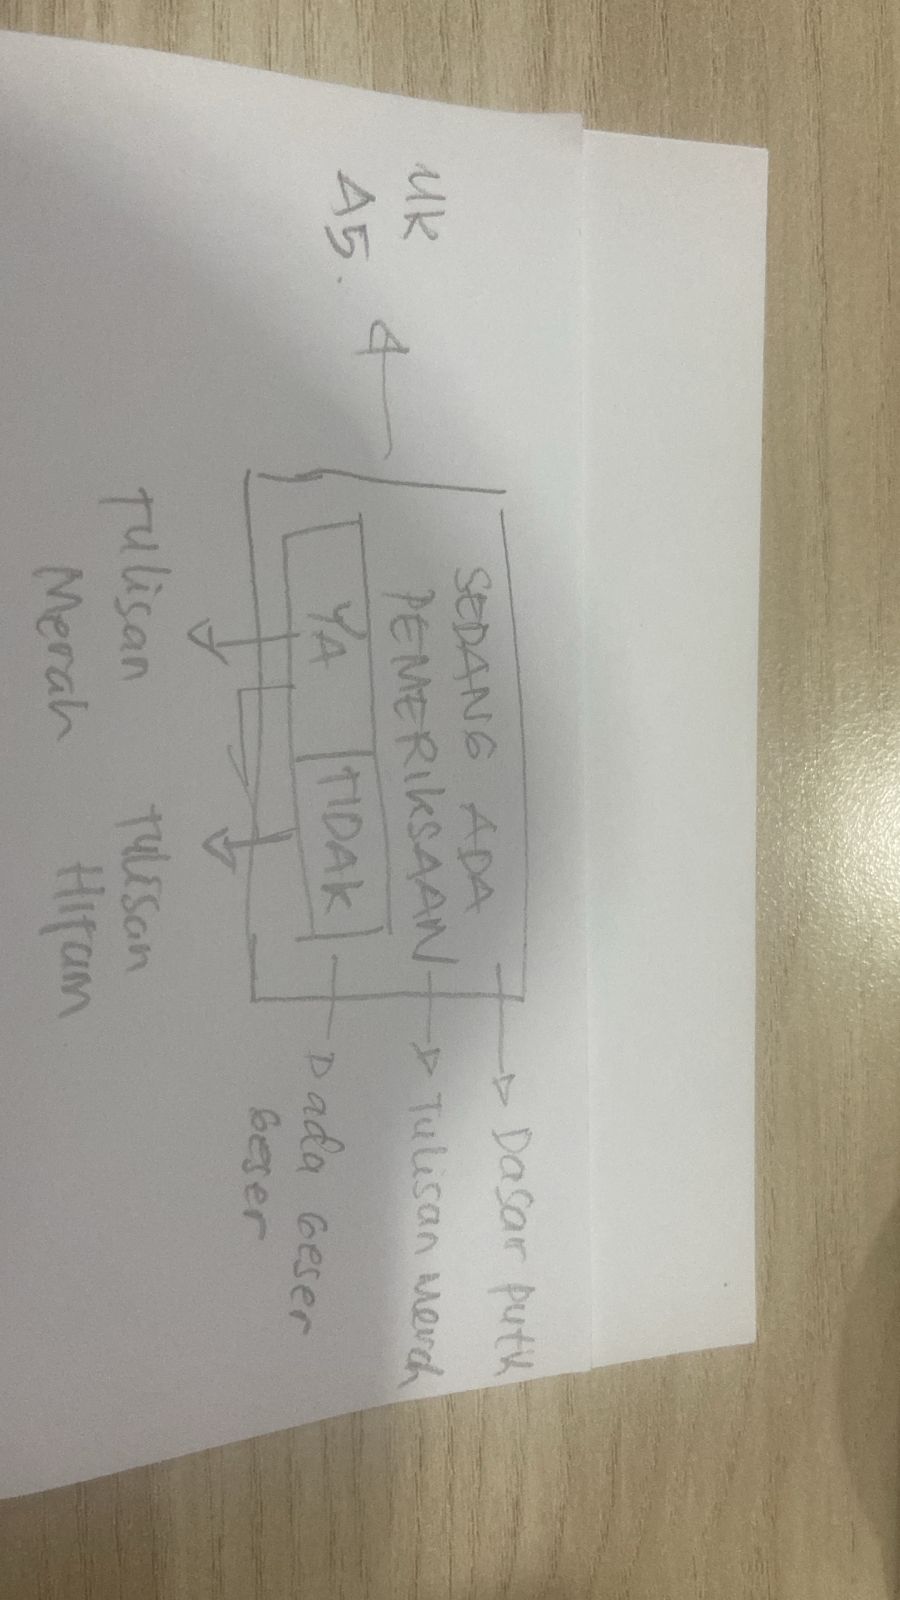 SEDANG ADA
PEMERIKSAAN
YA
TIDAK
UK
A5.
Dasar putih
Tulisan Merah
Dada Geser
Geser
Tulisan
Merah
Tulisan
Hitam